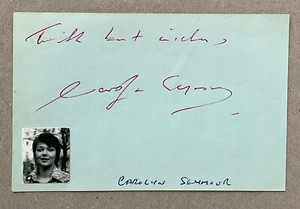 With best wishes
Carolyn Seymour
CAROLYN SEYMOUR